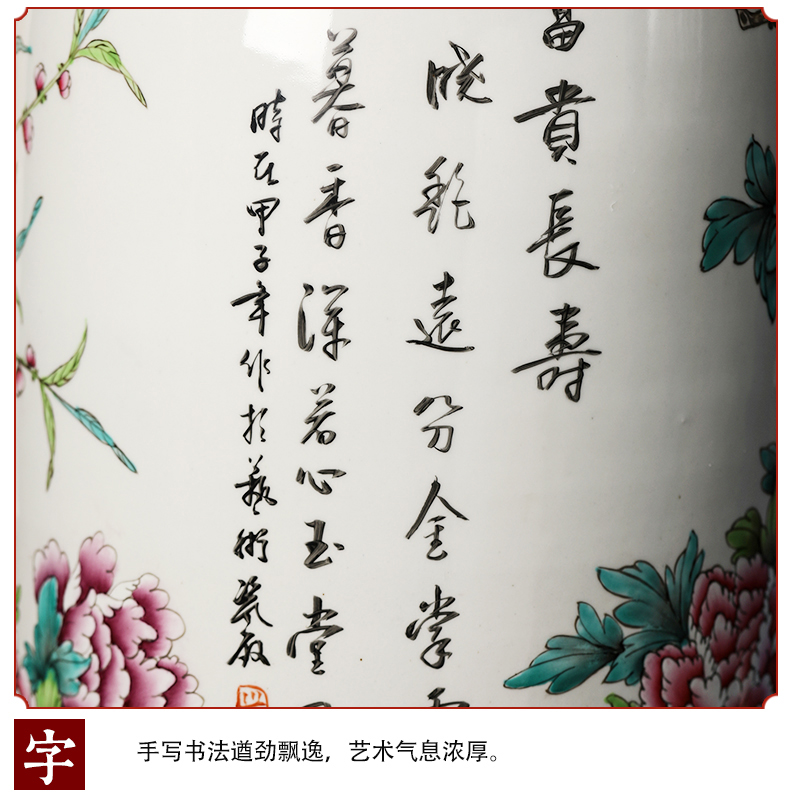 富貴長壽
曉艷遠分金掌
暮香深惹玉堂
時在甲子年作於藝術瓷厰
字
手写书法遒劲飘逸，艺术气息浓厚。